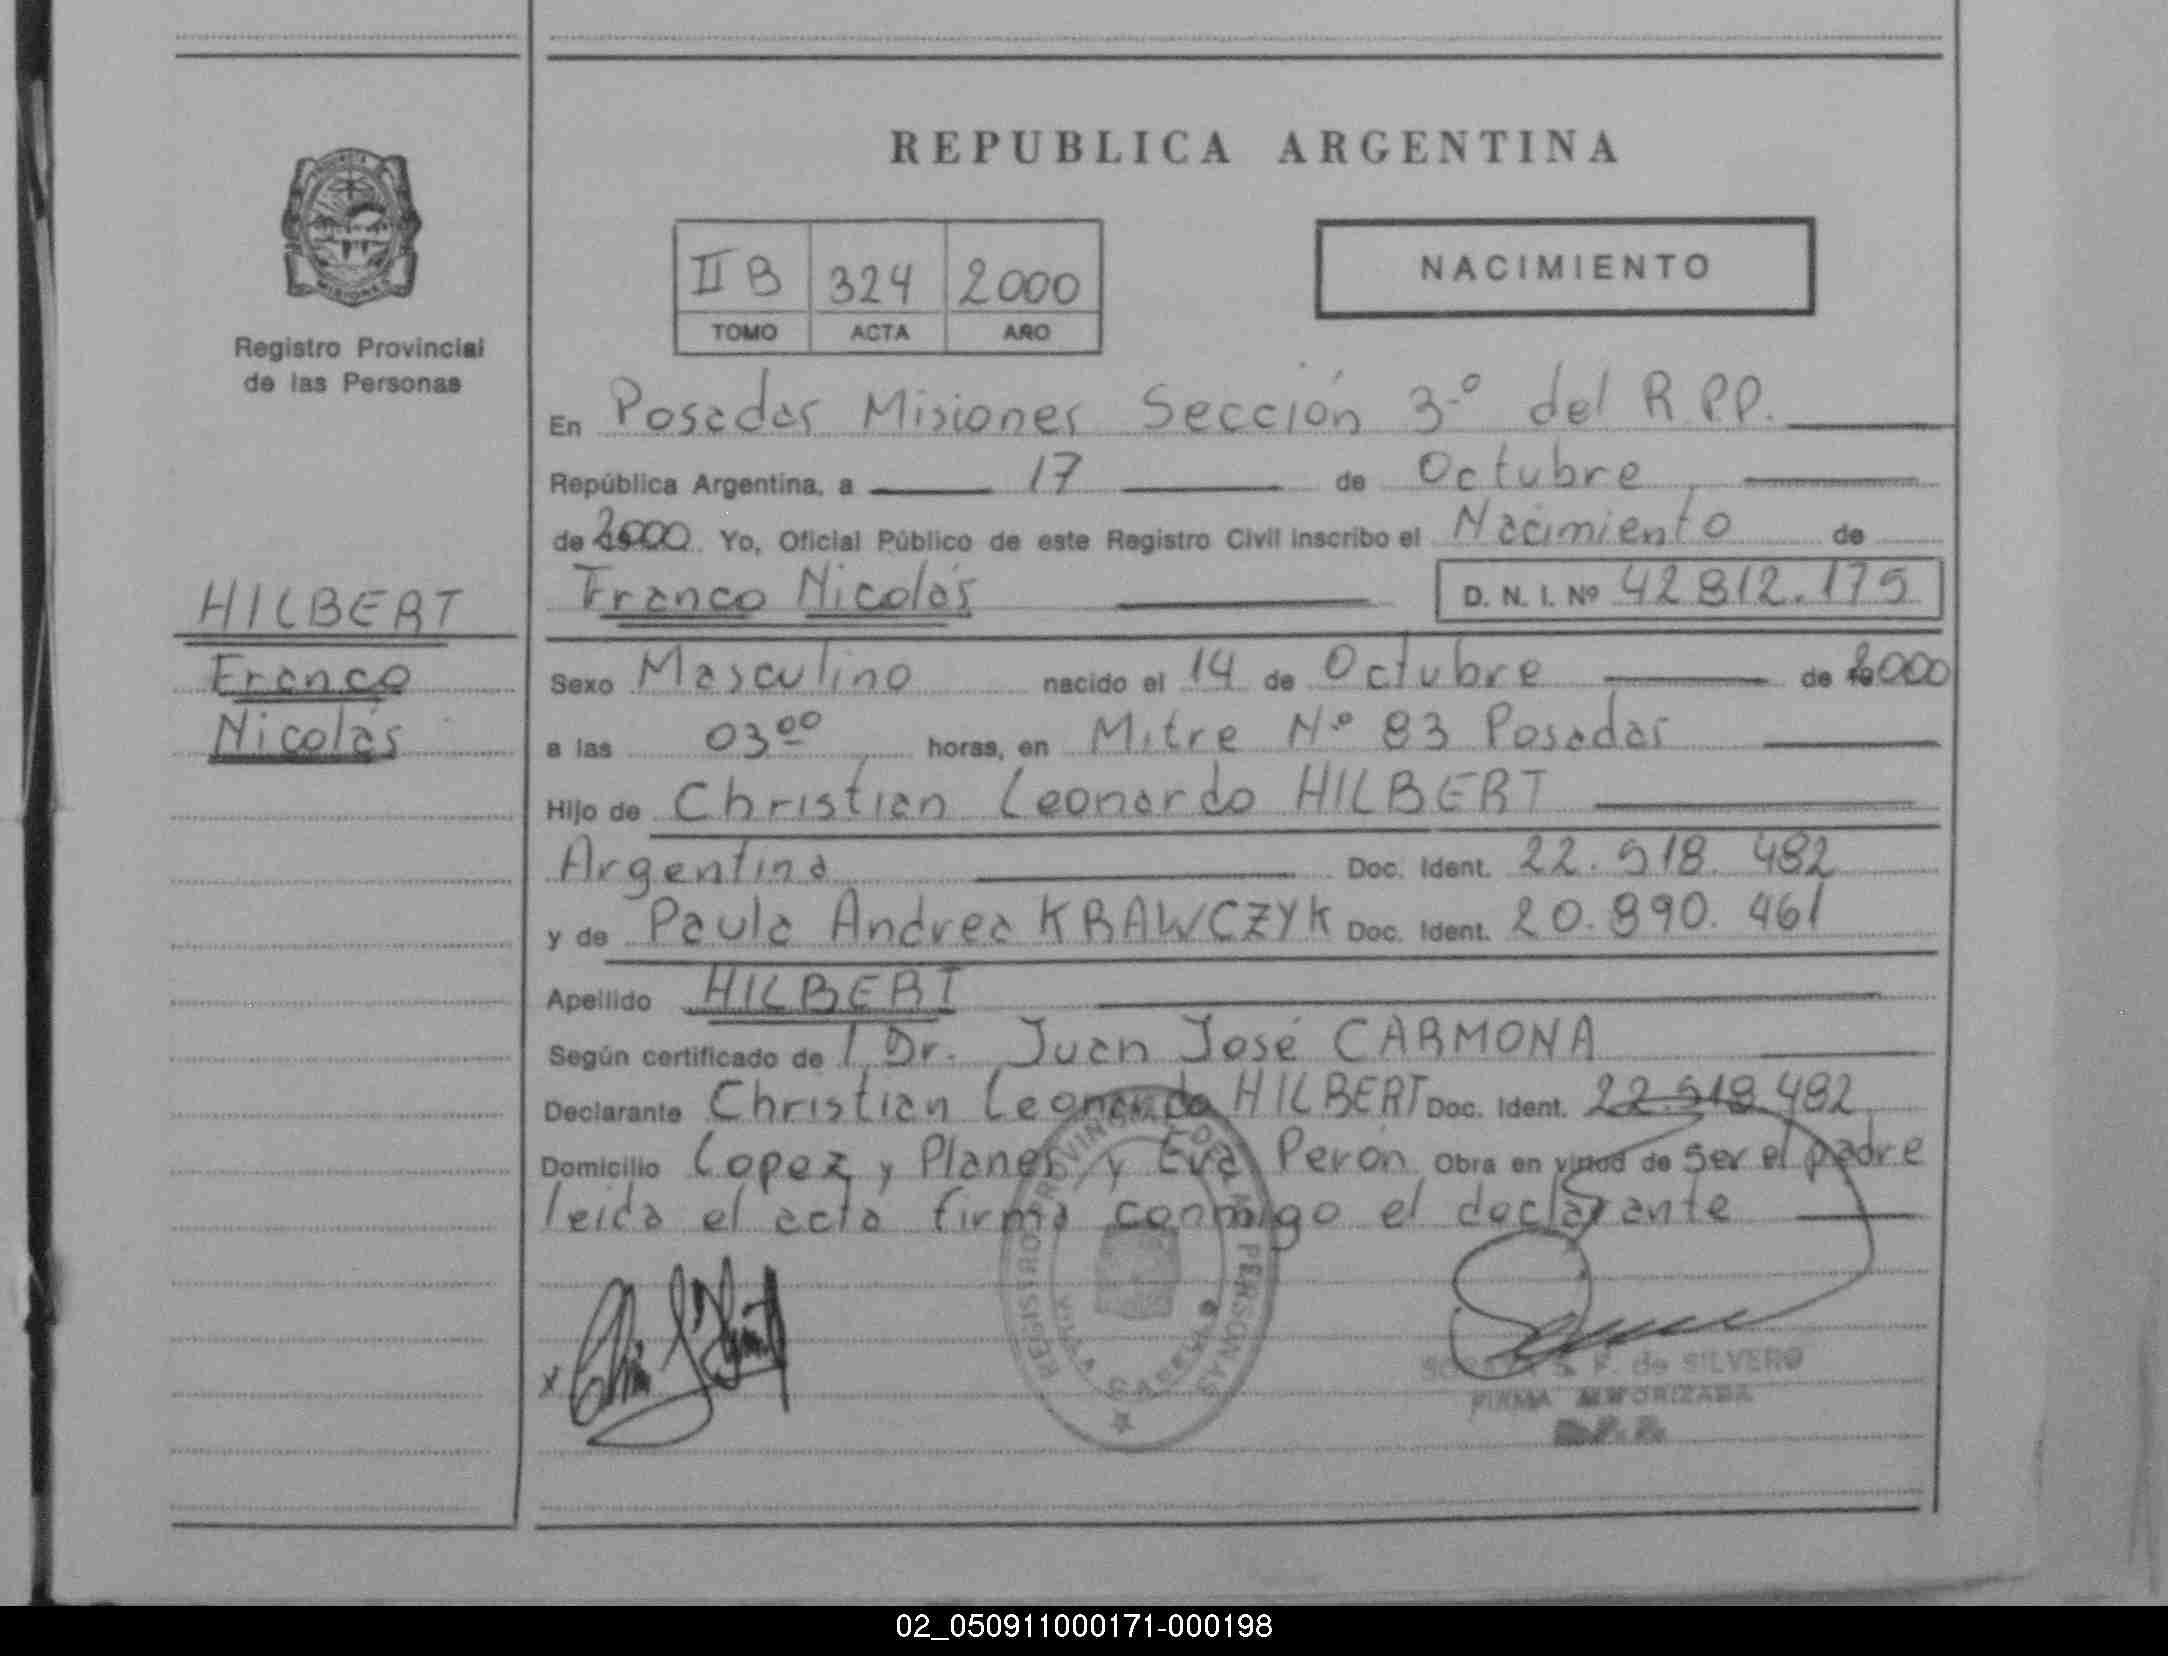 REPUBLICA ARGENTINA
II B 324 2000
TOMO ACTA AÑO
NACIMIENTO
Registro Provincial
de las Personas
HILBERT
Franco
Nicolás
En Posadas Misiones Sección 3º del R.P.P.
República Argentina, a 17 de Octubre
de 2000 Yo, Oficial Público de este Registro Civil inscribo el Nacimiento de
Franco Nicolás D. N. I. Nº 42812.175
Sexo Masculino nacido el 14 de Octubre de 2000
a las 03⁰⁰ horas, en Mitre Nº 83 Posadas
Hijo de Christian Leonardo HILBERT
Argentina Doc. Ident. 22.518.482
y de Paula Andrea KRAWCZYK Doc. Ident. 20.890.461
Apellido HILBERT
Según certificado de / Dr. Juan José CARMONA
Declarante Christian Leonardo HILBERT Doc. Ident. 22.518.482
Domicilio Lopez y Planes y Eva Perón Obra en virtud de ser el padre
leida el acta firma conmigo el declarante
REGISTRO PROVINCIAL DE LAS PERSONAS
S. F. de SILVERO
FIRMA AUTORIZADA
02_050911000171-000198